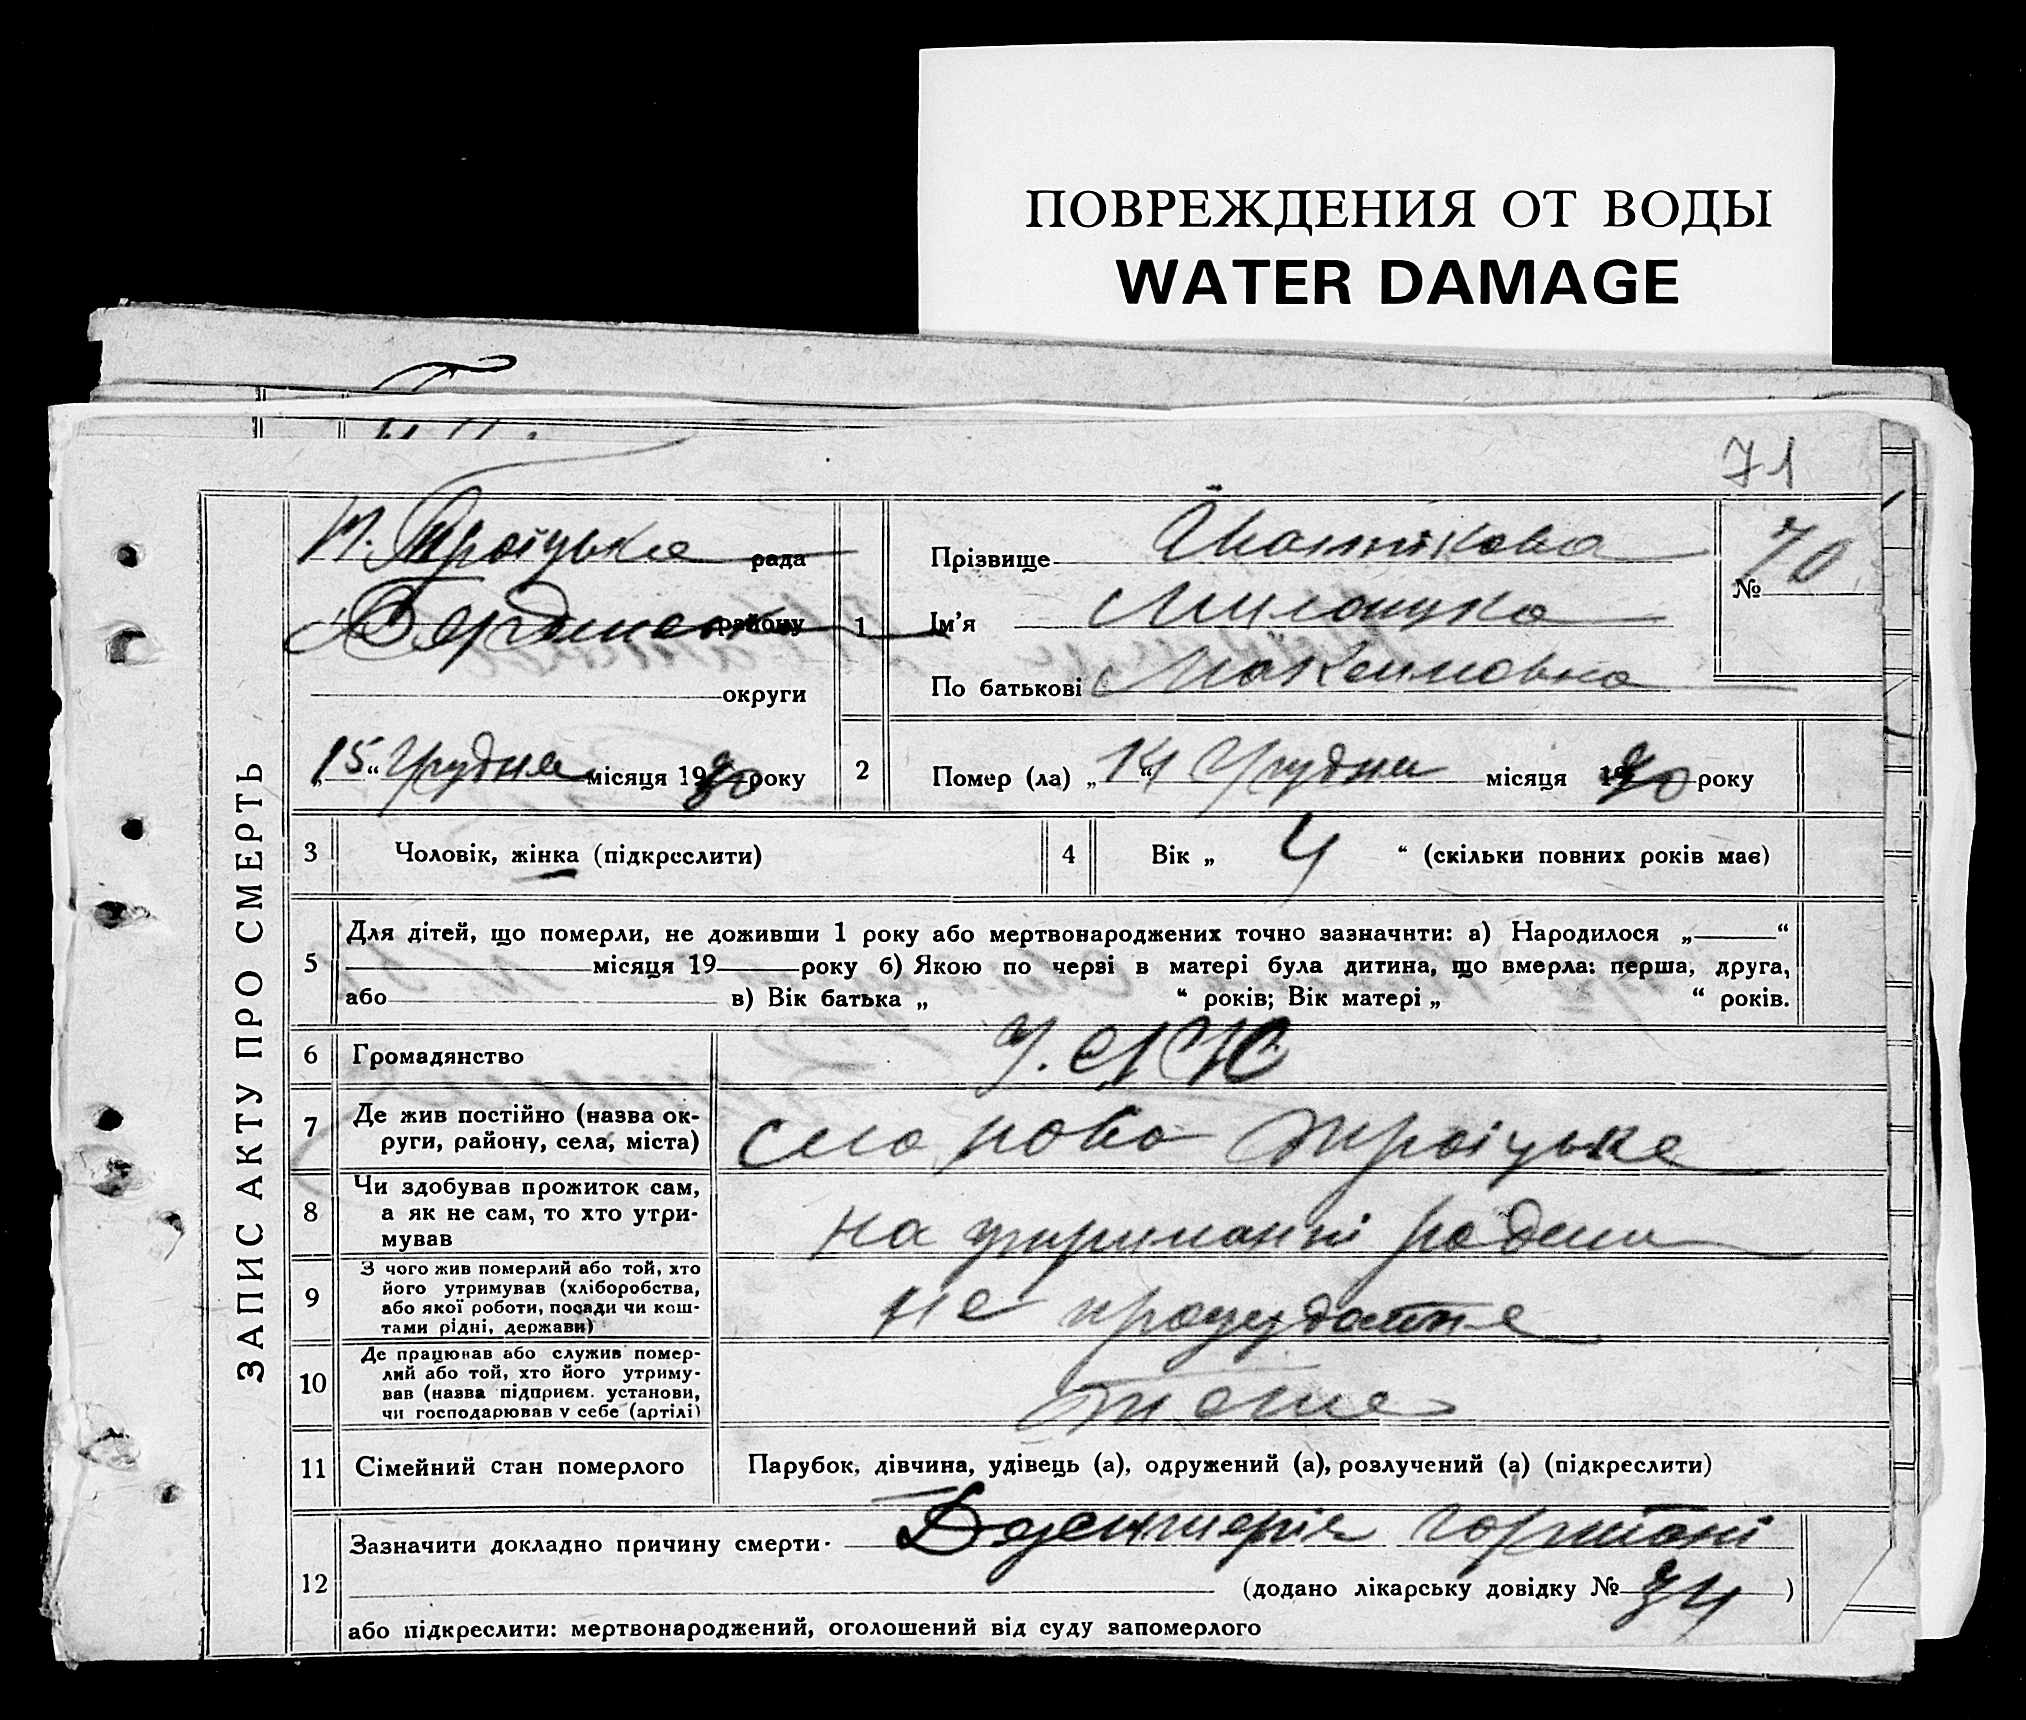 ПОВРЕЖДЕНИЯ ОТ ВОДЫ
WATER DAMAGE
71
ЗАПИС АКТУ ПРО СМЕРТЬ
Н. Троїцька рада
району
округи
„15“ Грудня місяця 1930 року
1
Прізвище
Ім'я
По батькові Максимовна
№ 70
2
Помер (ла) „14“ Грудня місяця 1930 року
3 Чоловік, жінка (підкреслити)
4 Вік „ 4 “ (скільки повних років має)
5
Для дітей, що померли, не доживши 1 року або мертвонароджених точно зазначити: а) Народилося „ “
місяця 19 року б) Якою по черві в матері була дитина, що вмерла: перша, друга,
або в) Вік батька „ “ років; Вік матері „ “ років.
6 Громадянство
7
Де жив постійно (назва ок-
руги, району, села, міста)
село ново Троїцьке
8
Чи здобував прожиток сам,
а як не сам, то хто утри-
мував
на утриманні родини
9
З чого жив померлий або той, хто
його утримував (хліборобства,
або якої роботи, посади чи кош-
тами рідні, держави)
не
10
Де працював або служив помер-
лий або той, хто його утриму-
вав (назва підприєм. установи,
чи господарював у себе (артілі)
11 Сімейний стан померлого
Парубок, дівчина, удівець (а), одружений (а), розлучений (а) (підкреслити)
12
Зазначити докладно причину смерти гортані
(додано лікарську довідку № 34)
або підкреслити: мертвонароджений, оголошений від суду запомерлого